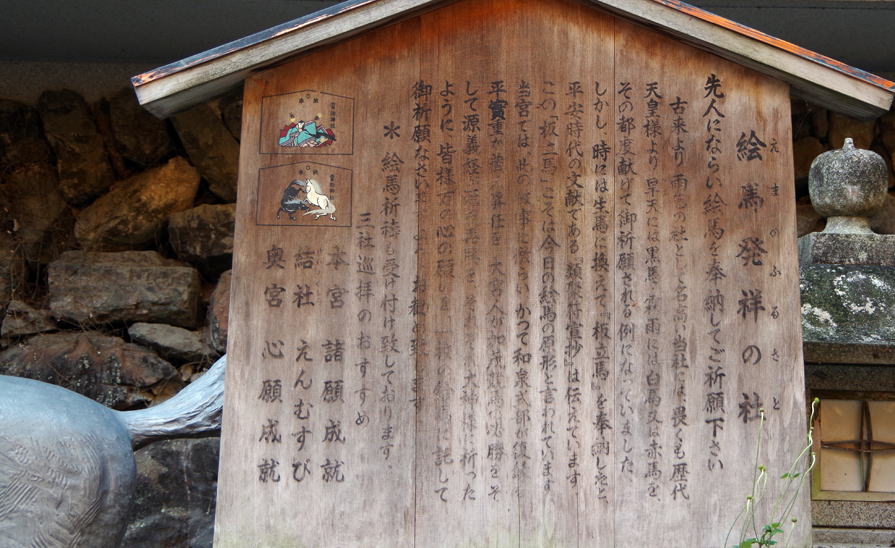 えまのふるさと
絵馬発祥の社
先人にならい絵馬を奉納してご祈願下さい
古来より雨乞の社として名高い当社には、畏くも歴代
天皇様より、旱天には黒馬、霖雨には白馬又は赤馬を
その都度献げて御祈願される例になっていました。
しかし、時には生馬に換えて「板立馬」を奉納したと、
平安時代の文献である「類聚符宣抄」は伝えています
この「板立馬」こそは今日の絵馬の原形と言われています
当宮では、此の故事に倣い、かつて和泉式部が復縁を
平實重が蔵人昇任を、大宮人が加茂競馬の必勝をそ
して源義経は源氏再興を、それぞれ大神様に祈った
ように、皆様方の心の願いを一枚の絵馬に託して
御祈願なさいますよう、お勧め致します
＊絵馬祈祷も受け付け致しております。
三社巡拝のおすすめ
本宮 諸願成就
結社 えんむすび
奥宮 心願成就